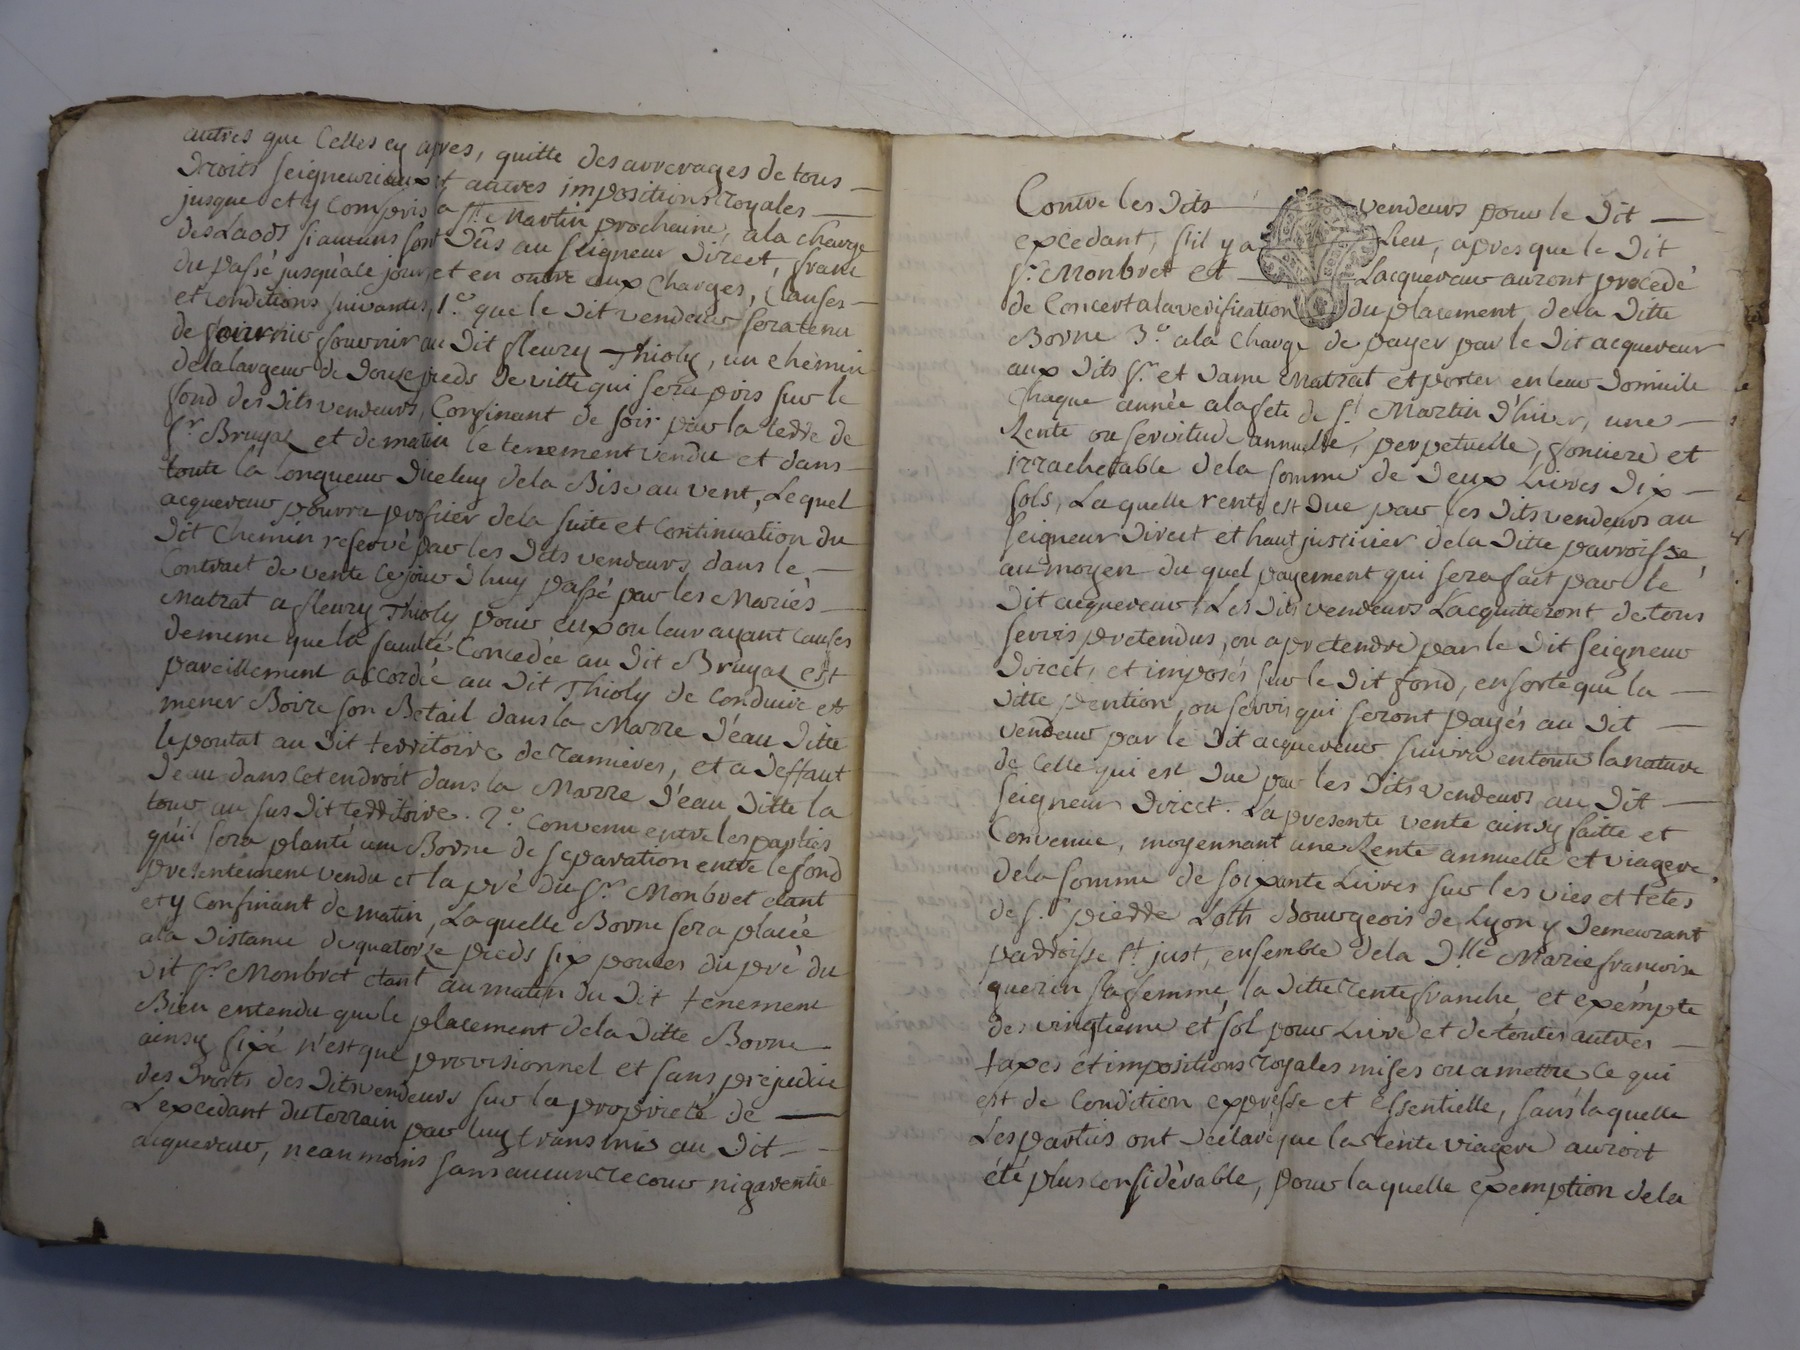 autres que Celles cy apres, quitte des arrerages de tous
Droits seigneuriaux et autres impositions royales
jusque et y Compris a st. Martin prochaine, ala charge
des Laods si aucuns sont Dûs au seigneur Direct, franc
du passé jusqu'a ce jour, et en outre aux Charges, Clauses
et Conditions suivantes, 1.° que le Dit vendeur sera tenu
de fournir au Dit fleury Thioly, un chemin
dela largeur de Douze pieds de ville qui sera pris sur le
fond des Dits vendeurs, Confinant de soir par la terre de
sr. Bruyas et de matin le tenement vendu et dans
toute la Longueur Diceluy dela Bise au vent, Lequel
acquereur pourra profiter dela suite et Continuation du
Dit Chemin reservé par les Dits vendeurs, dans le
Contract de vente Ce jour d'huy passé par les Mariés
Matrat a fleury Thioly pour eux ou leur ayant Causes
de meme que la faculté Concedée au Dit Bruyas est
pareillement accordée au Dit Thioly de Conduire et
mener Boire son Betail dans la Marre D'eau Ditte
le poutat au Dit territoire de ramieres, et a Deffaut
D'eau dans Cet endroit dans la Marre D'eau Ditte la
tour au sus Dit territoire. 2.° Convenu entre les parties
qu'il sera planté une Borne de separation entre le fond
presentement vendu et la pré du sr. Monbret etant
et y Confinant de matin, Laquelle Borne sera placée
ala Distance de quatorze pieds six pouces du pré du
Dit sr. Monbret etant au matin du Dit tenement
Bien entendu que le placement dela Ditte Borne
ainsy fixé n'est que provisionnel et sans prejudice
des Droits des Dits vendeurs sur la proprieté de
L'excedant du terrain par luy transmis au Dit
acquereur, neanmoins sans aucun recour ni garentie
Contre les Dits vendeurs pour le Dit
excedant, s'il y a Lieu, apres que le Dit
sr. Monbret et Lacquereur auront procedé
de Concert a la verification du placement dela Ditte
Borne 3.° ala Charge de payer par le Dit acquereur
aux Dits sr. et Dame Matrat et porter en leur Domicile
Chaque année ala fete de st. Martin d'hiver, une
Rente ou servitude annuelle, perpetuelle, fonciere et
irrachetable dela somme de Deux Livres Dix
sols, Laquelle rente est Due par les Dits vendeurs au
seigneur Direct et haut justicier dela Ditte parroisse,
au moyen du quel payement qui sera fait par le
Dit acquereur, Les Dits vendeurs Lacquitteront de tous
servis pretendus, ou a pretendre par le Dit seigneur
Direct, et imposés sur le Dit fond, ensorte que la
Ditte pention, ou servis qui seront payés au Dit
vendeur par le Dit acquereur suivra en toute la nature
de Celle qui est Due par les Dits vendeurs au Dit
seigneur Direct. La presente vente ainsy faitte et
Convenue, moyennant une Rente annuelle et viagere,
dela somme de soixante Livres sur les vies et tetes
de sr. pierre Loth Bourgeois de Lyon y Demeurant
parroisse st. just, ensemble dela Dlle Marie francoise
guerin sa femme, la Ditte rente franche et exempte
de vingtieme et sol pour Livre et de toutes autres
taxes et impositions royales mises ou a mettre Ce qui
est de Condition expresse et Essentielle, sans laquelle
Les parties ont declaré que la rente viagere auroit
été plus considérable, pour laquelle exemption dela